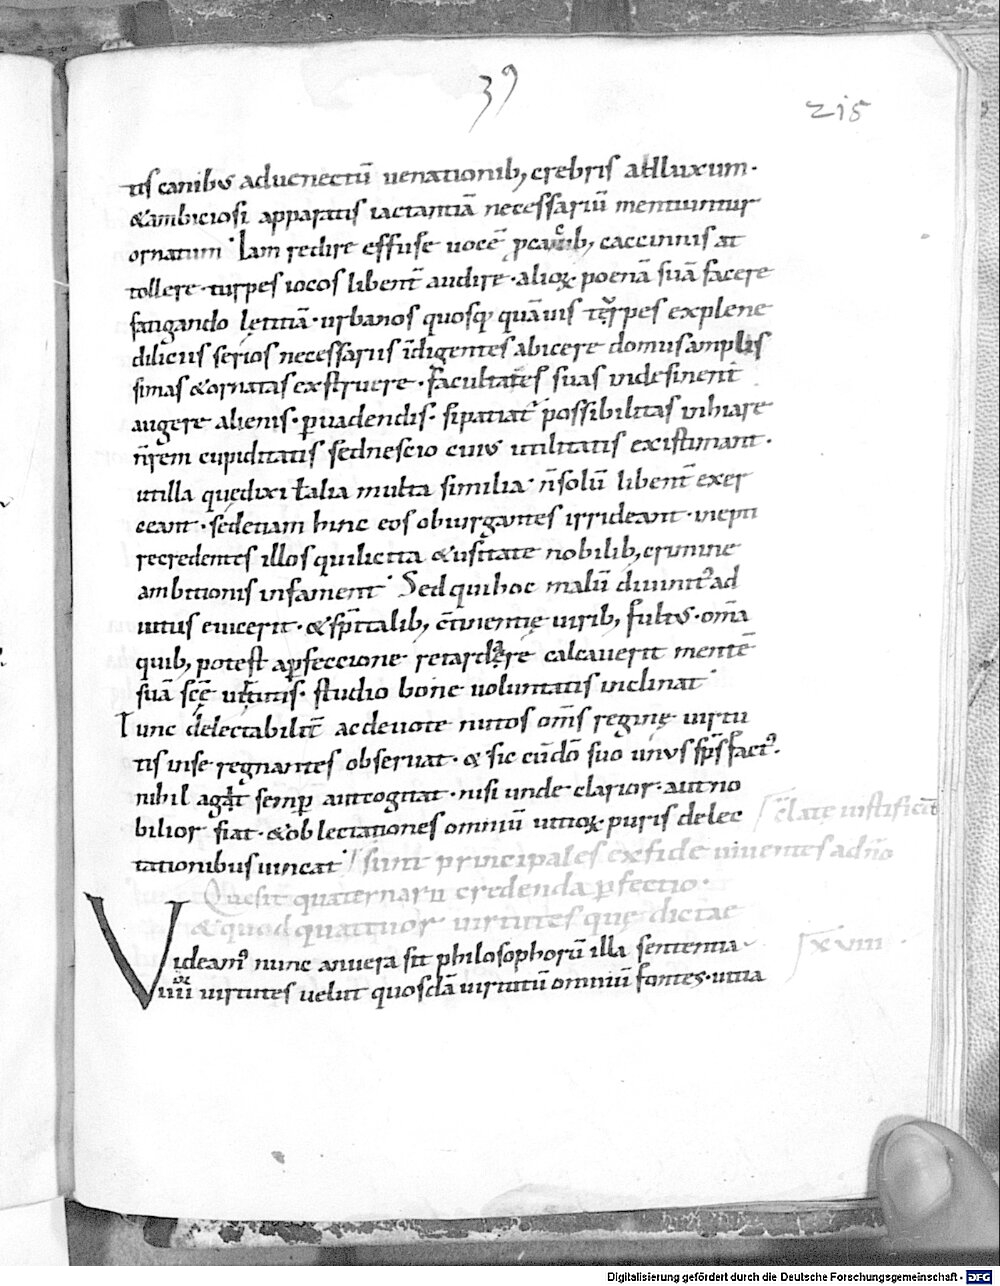 39
215
tis canibus aducnectū uenationib; crebris adłluxum·
&ambiciosi apparatis iactantiā necessariū mentiuntur
ornatum· Iam redire effuse uocē caccinnis at
tollere· turpes iocos libent̄ audire· alioꝝ poenā suā facere
fatigando lętitiā· urbanos quosq; quāuis turpes explene
diliciis serios necessariis īdigentes abicere domusamplis
simas &ornatas exstruere· facultates suas indesinent̄
augere alienis· ꝑuadendis· sipatiat᷒ possibilitas inhiare
n̄rem cupiditatis sednescio cuius utilitatis existimant·
utilla quędixi łalia multa similia· n̄solū libent̄ exer
ceant· sedetiam hinc eos obiurgantes irrideant· inepti
recredentes illos quilicita &usitate nobilib; crimine
ambitionis infament· Sed quihoc malū diuinit᷒ ad
iutus euicerit· &sp̄italib; c̄tinentię uirib; fultus· om̄a
quib; potest aꝑfeccione retardare calcauerit mentē
suā scę̄ studio bonę uoluntatis inclinat
Tunc delectabilit̄ acdeuote nutos om̄s reginę uirtu
tis inse regnantes obseruat· & sic cūdō suo unus sp̄s fact᷒·
nihil agat semꝑ autcogitat· nisi unde clarior· aut no
bilior fiat· &oblectationes omniū uitioꝝ puris delec
tationibus uincat· sunt principales exfide uiuentes addn̄o
Quesit quaternarii credenda ꝑfectio·
&quod quattuor uirtutes quę dictae
xviii·
Videam᷒ nunc anuera sit philosophorū illa sententia
iiii uirtutes uelut quosdā uirtutū omniū fontes· utua